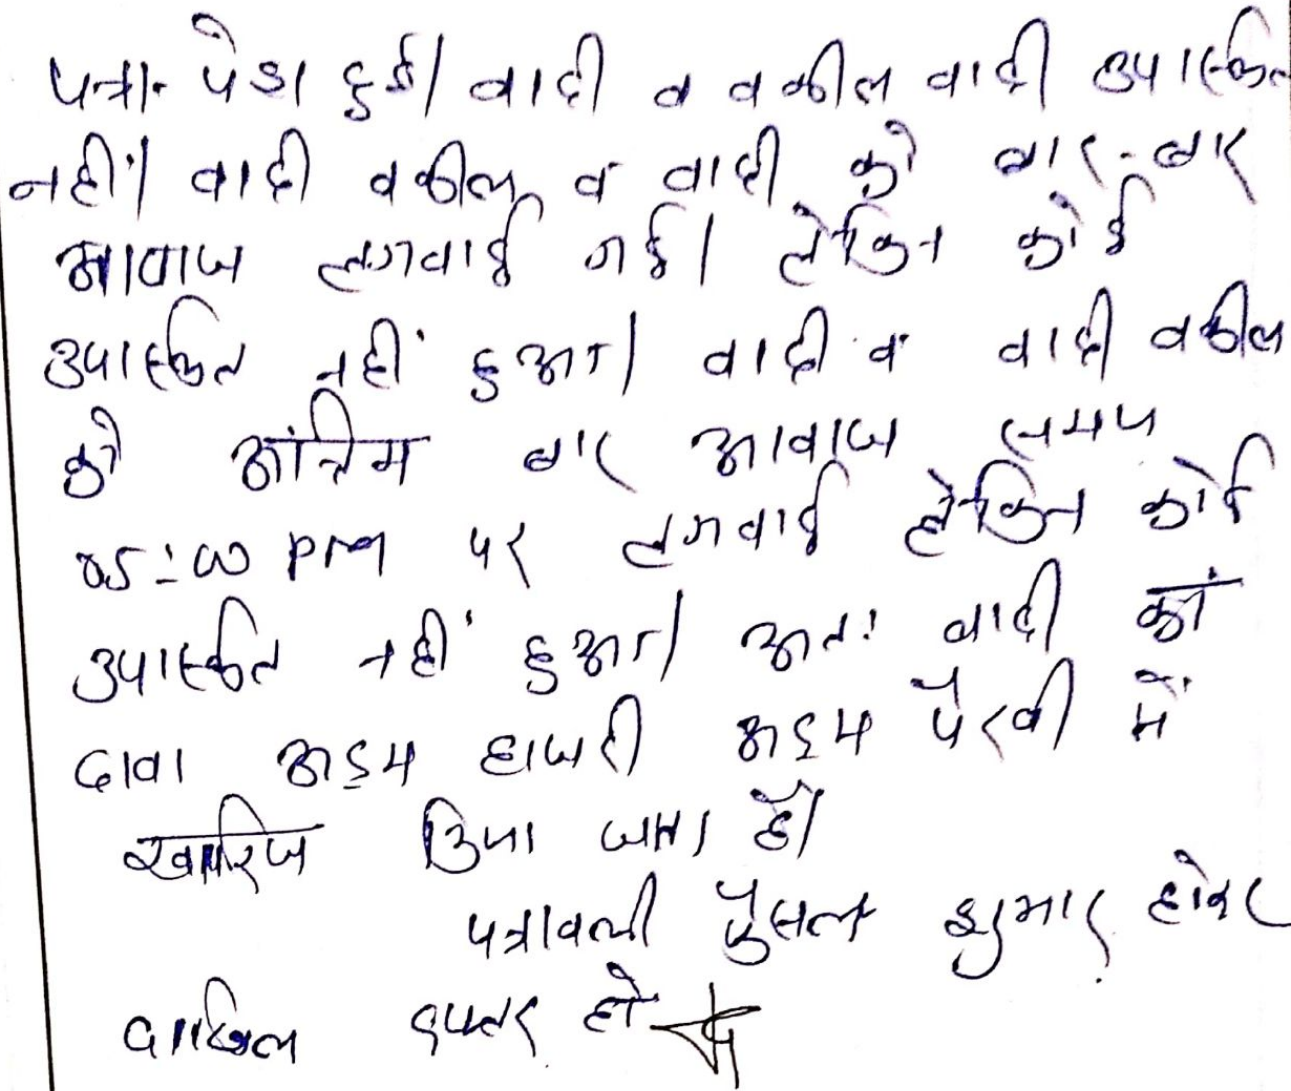 पत्रा. पेश हुई। वादी व वकील वादी उपस्थित
नहीं। वादी वकील व वादी को बार-बार
आवाज लगवाई गई। लेकिन कोई
उपस्थित नहीं हुआ। वादी व वादी वकील
को अंतिम बार आवाज समय
05:00 PM पर लगवाई लेकिन कोई
उपस्थित नहीं हुआ। अतः वादी का
दावा अदम हाजरी अदम पैरवी में
खारिज किया जाता है।
पत्रावली फैसल शुमार होकर
दाखिल दफ्तर हो